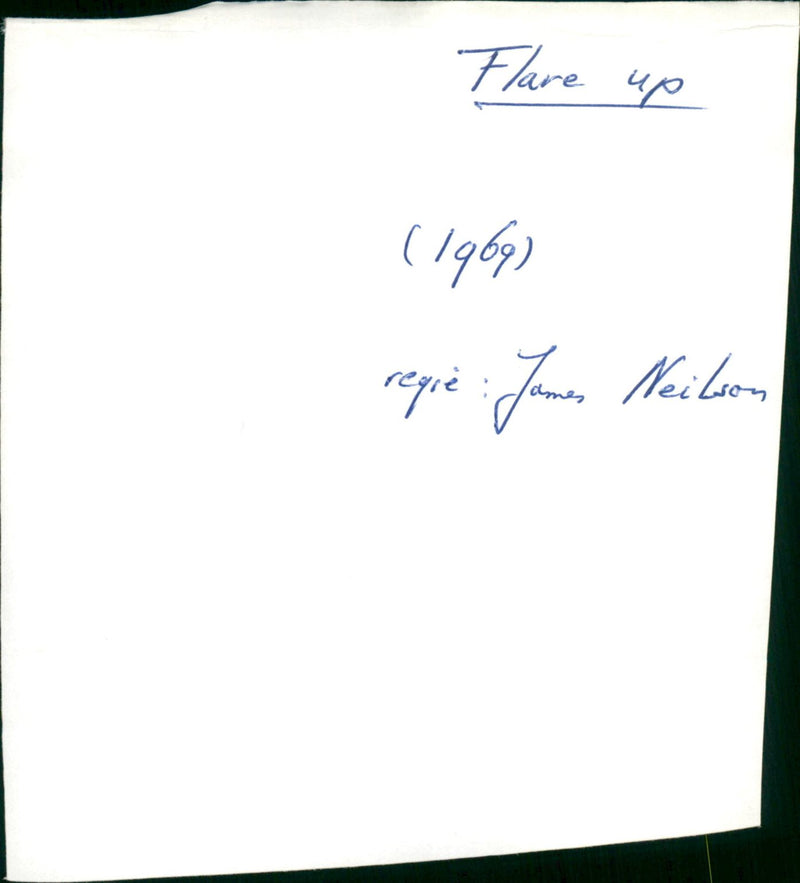 Flare up
(1969)
regie : James Neilson